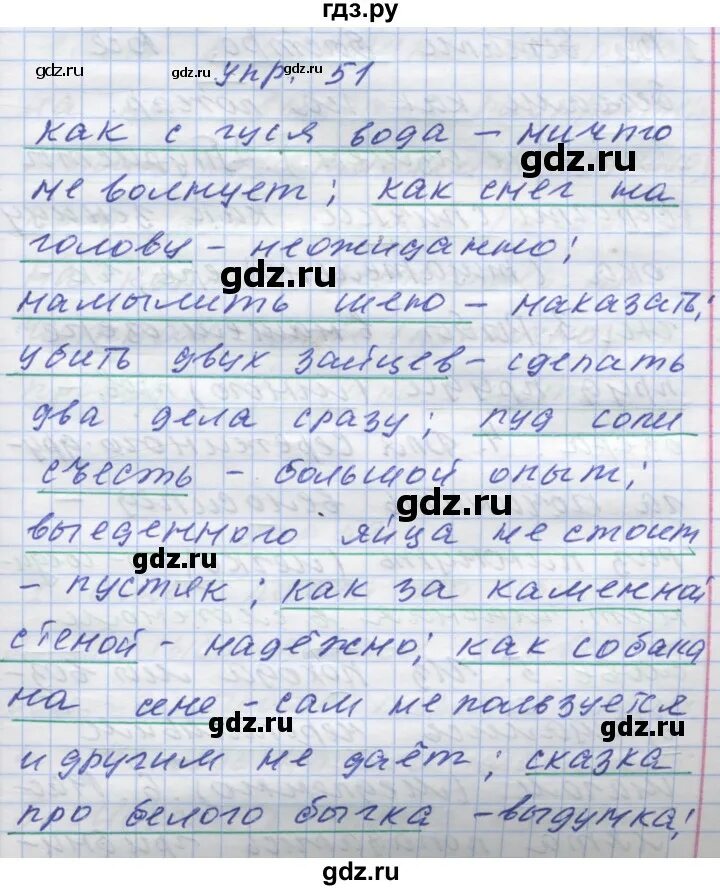 гдз.ру
gdz.ru упр. gdz.ru 51 gdz.ru
как с гуся вода – ничего
gdz.ru
не волнует; как снег на
голову – неожиданно;
gdz.ru
намылить шею – наказать;
убить двух зайцев – сделать
gdz.ru
два дела сразу; пуд соли
съесть – большой опыт;
gdz.ru
выеденного яйца не стоит
gdz.ru
– пустяк; как за каменной
gdz.ru
стеной – надёжно; как собака
на сене – сам не пользуется
gdz.ru gdz.ru
и другим не даёт; сказка
gdz.ru
про белого бычка – выдумка;
gdz.ru